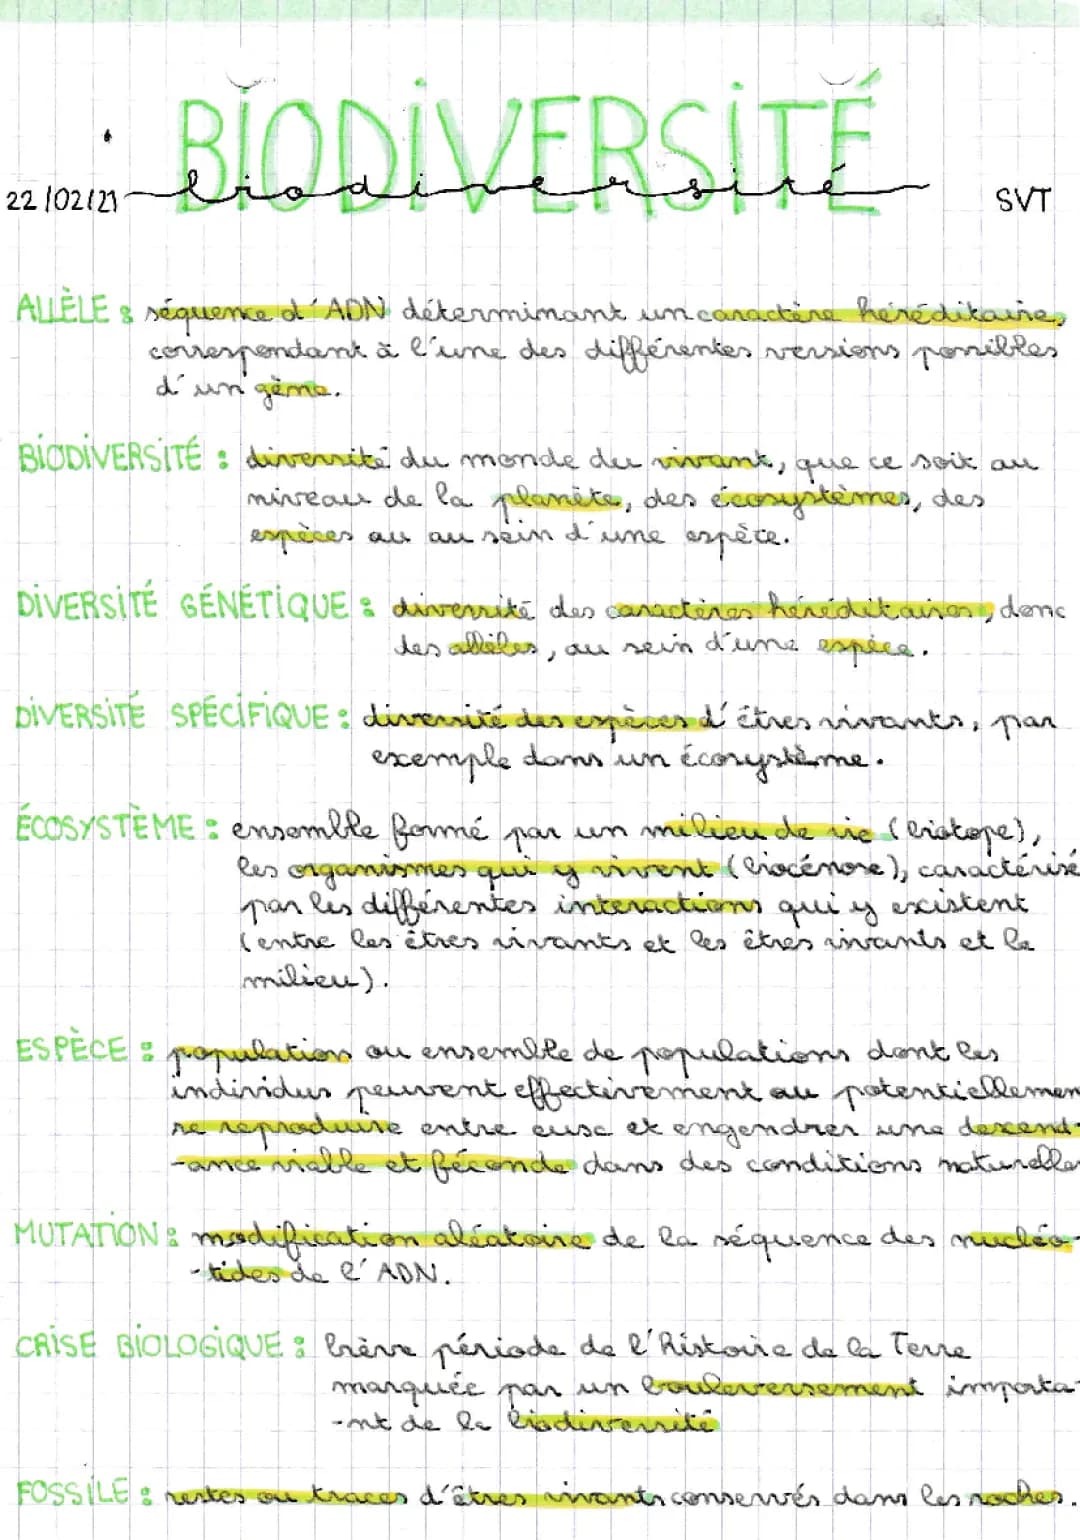 BIODIVERSITÉ
22/02/21 biodiversité SVT
ALLÈLE : séquence d'ADN déterminant un caractère héréditaire,
correspondant à l'une des différentes versions possibles
d'un gène.
BIODIVERSITÉ : diversité du monde du vivant, que ce soit au
niveau de la planète, des écosystèmes, des
espèces ou au sein d'une espèce.
DIVERSITÉ GÉNÉTIQUE : diversité des caractères héréditaires, donc
des allèles, au sein d'une espèce.
DIVERSITÉ SPÉCIFIQUE : diversité des espèces d'êtres vivants, par
exemple dans un écosystème.
ÉCOSYSTÈME : ensemble formé par un milieu de vie (biotope),
les organismes qui y vivent (biocénose), caractérisé
par les différentes interactions qui y existent
(entre les êtres vivants et les êtres vivants et le
milieu).
ESPÈCE : population ou ensemble de populations dont les
individus peuvent effectivement ou potentiellemen
se reproduire entre eux et engendrer une descend-
-ance viable et féconde dans des conditions naturelles
MUTATION : modification aléatoire de la séquence des nucléo-
-tides de l'ADN.
CRISE BIOLOGIQUE : brève période de l'histoire de la Terre
marquée par un bouleversement importa-
-nt de la biodiversité
FOSSILE : restes ou traces d'êtres vivants conservés dans les roches.